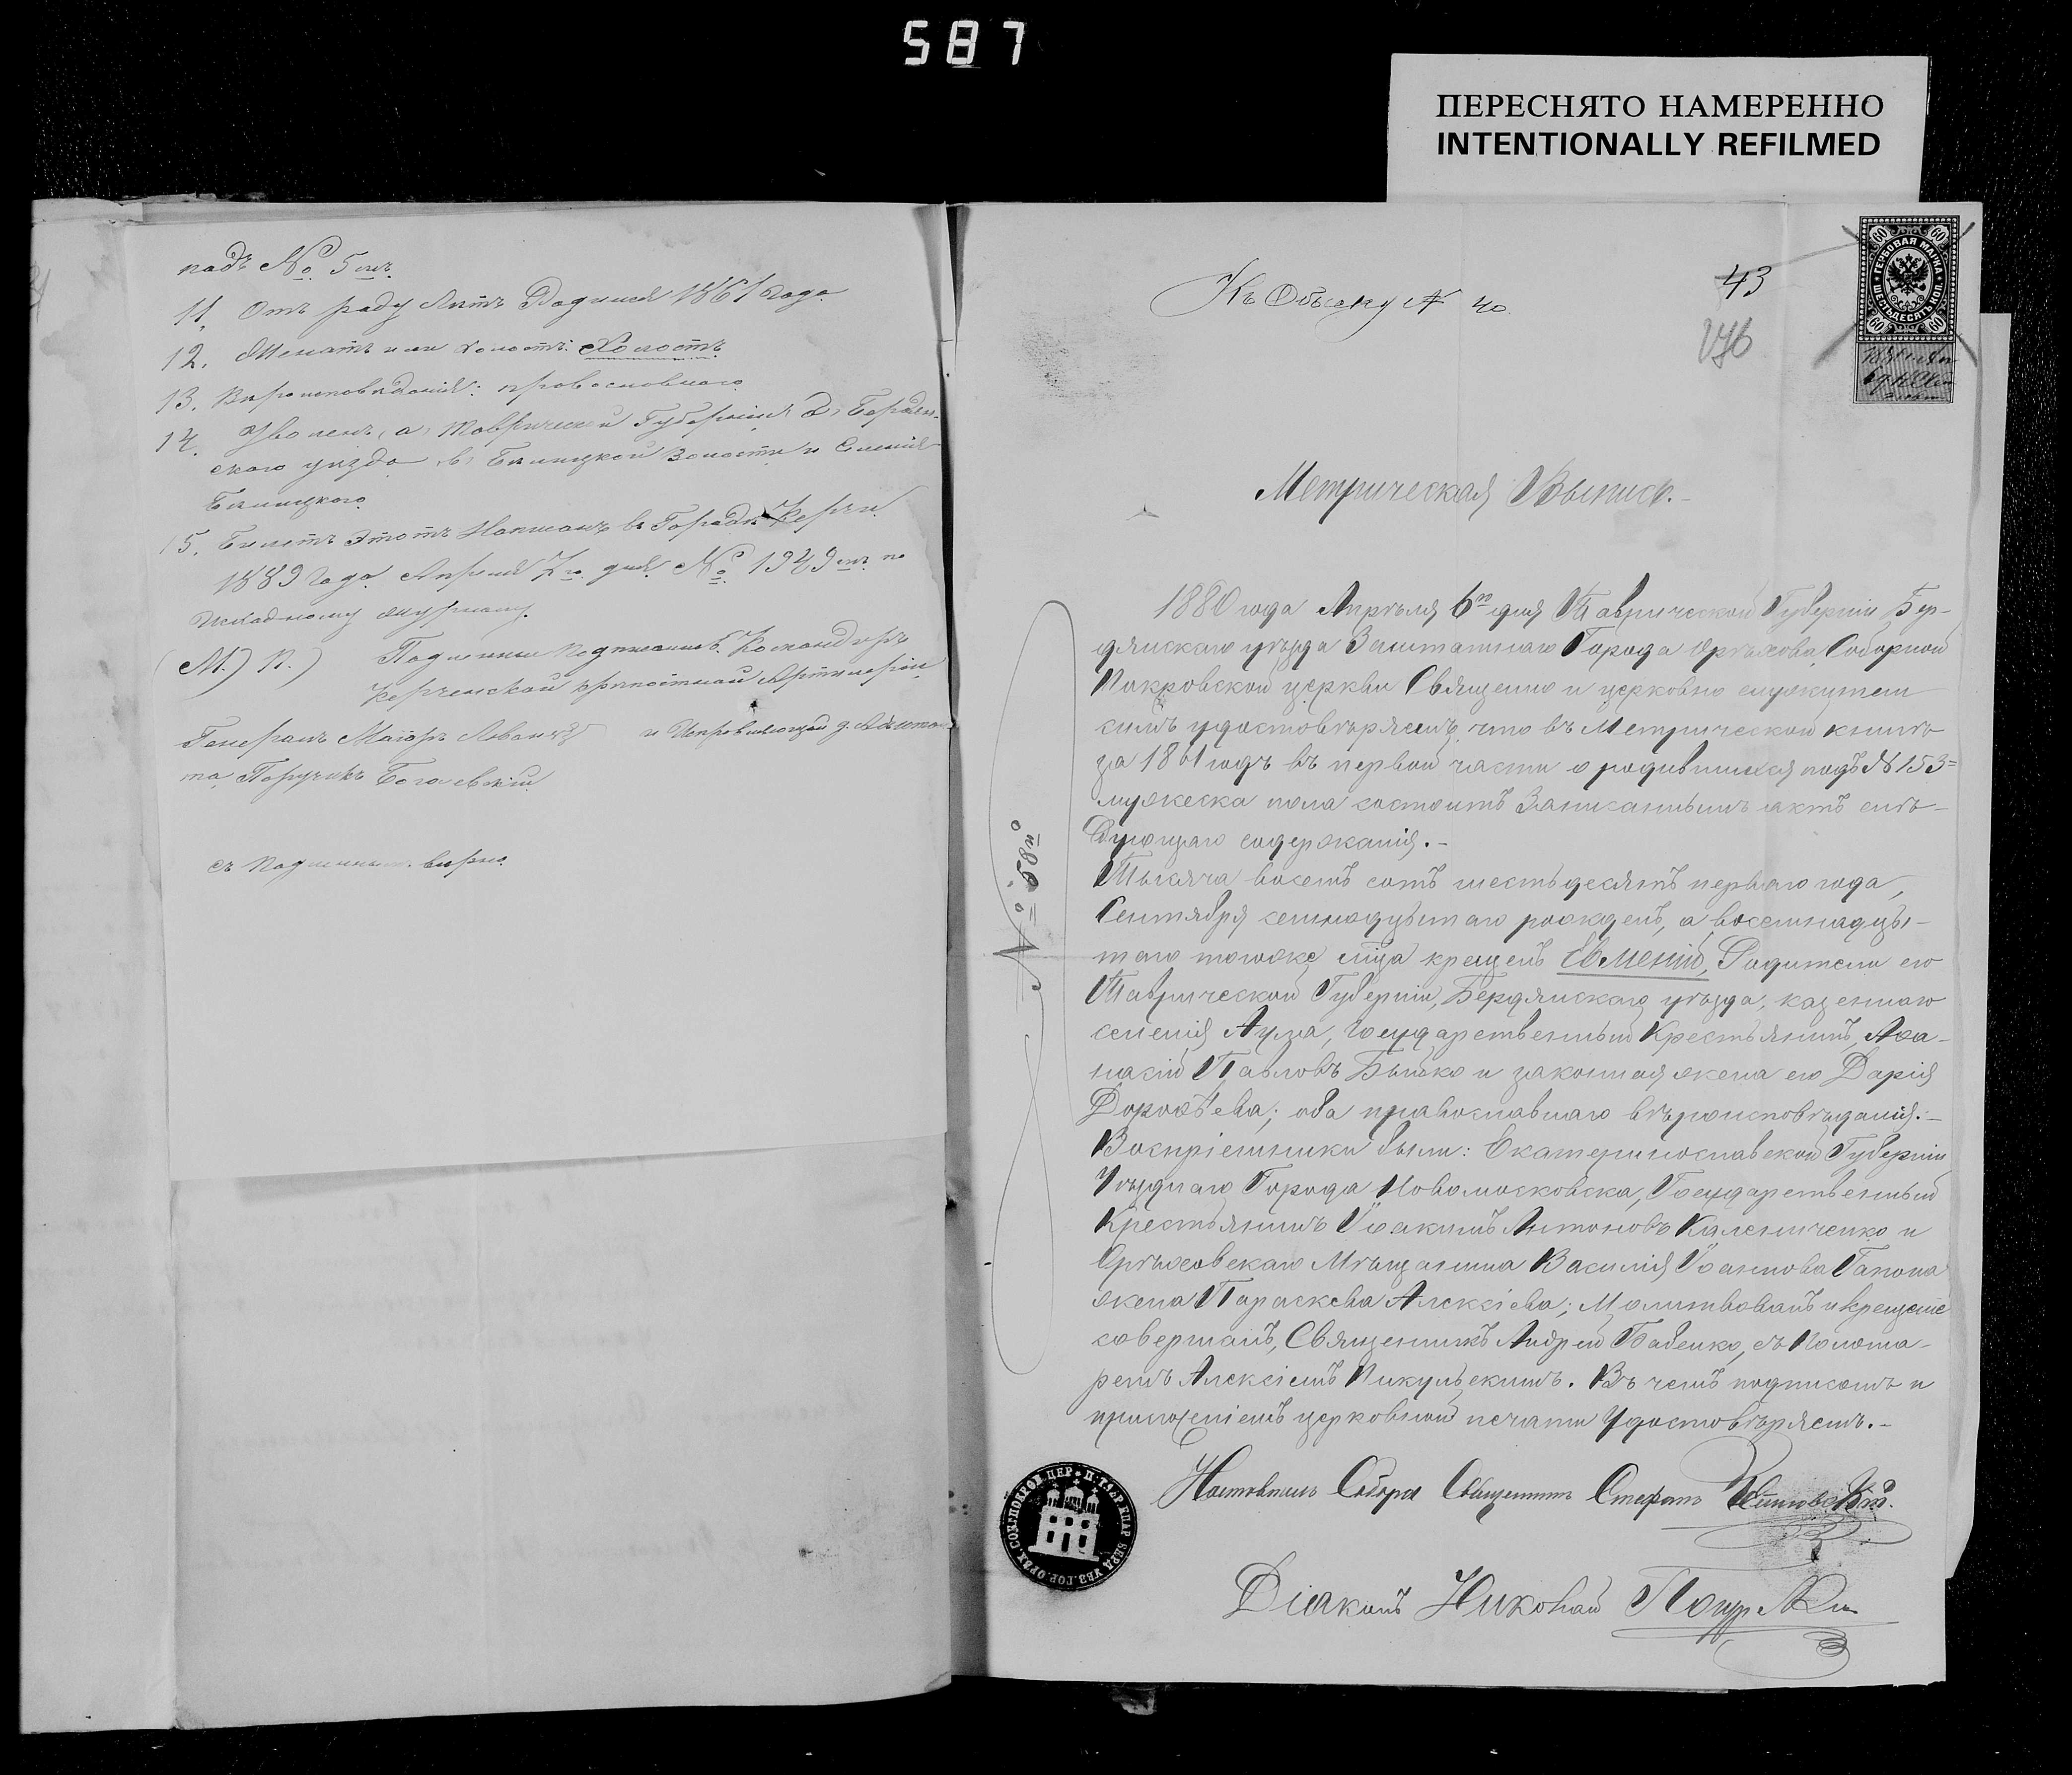 587
ПЕРЕСНЯТО НАМЕРЕННО
INTENTIONALLY REFILMED
подъ № 5мъ.
11. Отъ роду Лѣтъ Родился 1861 года.
12. Женатъ или холостъ: Холостъ.
13. Вѣроисповѣданія: православнаго
14. Уволенъ, а, Таврической Губерніи б, Бердян-
скаго уѣзда в,
15. Билетъ этотъ Написанъ въ Городѣ Керчи.
1889 года Апрѣля дня № по
Исходному журналу.
(М.) П.) Подлинный подписали: Командиръ
Керченской крѣпостной Артилеріи,
Генералъ Маіоръ и Исправляющій д. Адъюта-
та, Поручикъ
съ Подлиннымъ вѣрно.
Къ Обыску № 40
43
60 60
ГЕРБОВАЯ МАРКА
ШЕСТЬДЕСЯТЬ КОП.
60 60
Метрическая Выпись.-
1880 года Апрѣля 6го дня Таврической Губерніи Бер-
дянскаго уѣзда Заштатнаго Города Орѣхова, Соборной
Покровской церкви Священно и церковно служители
симъ удостовѣряемъ, что въ Метрической книгѣ
за 1861 годъ въ первой части о родившихся подъ № 153=
мужеска пола состоитъ Записаннымъ актъ слѣ-
дующаго содержанія.-
Тысяча восемъ сотъ шестьдесятъ перваго года,
Сентября семнадцатаго рожденъ, а восемнадца-
таго тогоже мца крещенъ Евменій, Родители его
Таврической Губерніи, Бердянскаго уѣзда, казеннаго
селенія Аула, Государственный Крестьянинъ, Аѳа-
насій Павловъ Бычко и законная жена его Дарія
Дороѳѣева; оба православнаго вѣроисповѣданія.-
Воспріемники были: Екатеринославской Губерніи
Уѣзднаго Города Новомосковска, Государственный
Крестьянинъ Іоакимъ Антоновъ Калениченко и
Орѣховскаго Мѣщанина Василія Іоаннова Гапона
жена Параскева Алексіева; Молитвовалъ и крещеніе
совершалъ, Священникъ Андрей Бабенко, съ Понома-
ремъ Алексіемъ Пикульскимъ. Въ чемъ подписомъ и
приложеніемъ церковной печати Удостовѣряемъ.-
№ 589
Настоятель Собора Священникъ Стефанъ
Діаконъ Николай